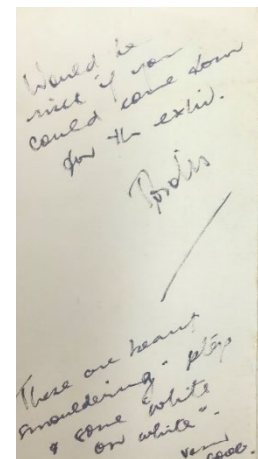 Would be
nice if you
could come down
for the exhib.
These are heavy
smouldering
& some "white
on white".